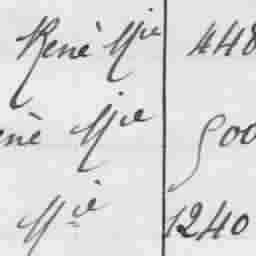 René Mie 448
ené Mie 500
Mie 1240